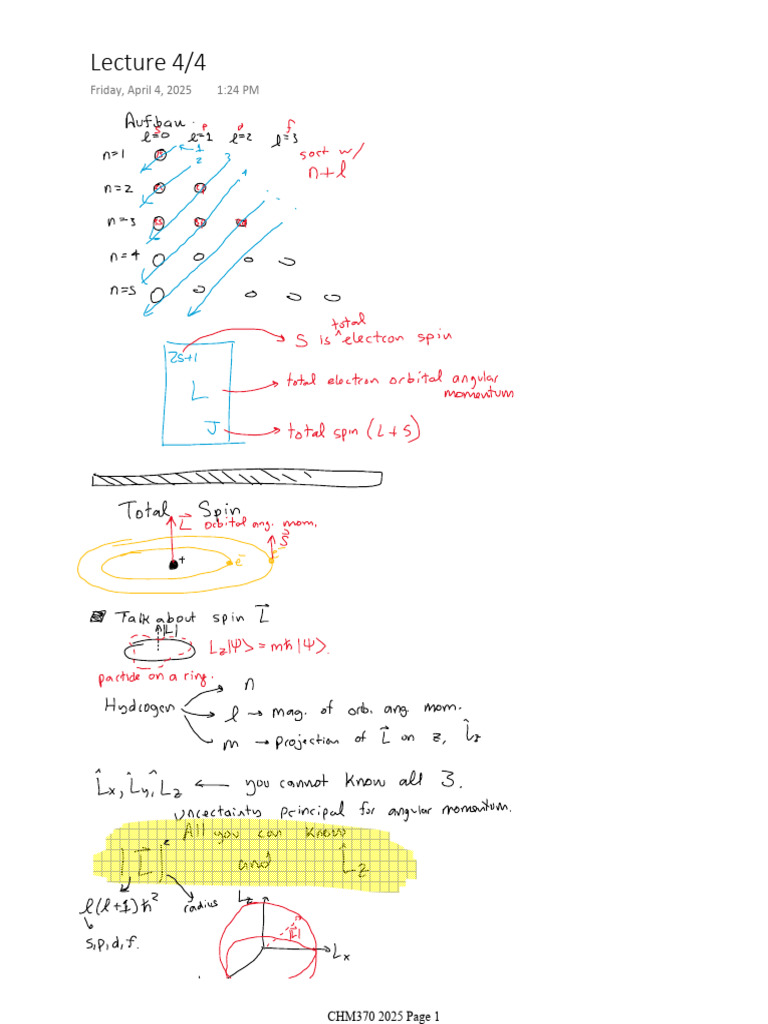 Lecture 4/4
Friday, April 4, 2025 1:24 PM
Aufbau.
s p d f
l=0 l=1 l=2 l=3
n=1 1 2 3 4
sort w/
n+l
n=2
n=3
n=4
n=5
total
2S+1 S is ^ electron spin
L total electron orbital angular
momentum
J total spin (L+S)
Total Spin
L⃗ orbital ang. mom.
S⃗
+ e⁻ e⁻
Talk about spin L⃗
|L|
L_z|Ψ> = mħ|Ψ>.
particle on a ring.
Hydrogen n
l → mag. of orb. ang mom.
m → projection of L⃗ on z, L̂_z
L̂x, L̂y, L̂z ← you cannot know all 3.
Uncertainty principal for angular momentum.
All you can know
|L⃗|² and L̂z
l(l+1)ħ² radius
s,p,d,f.
Lz
|L⃗|
Lx
CHM370 2025 Page 1